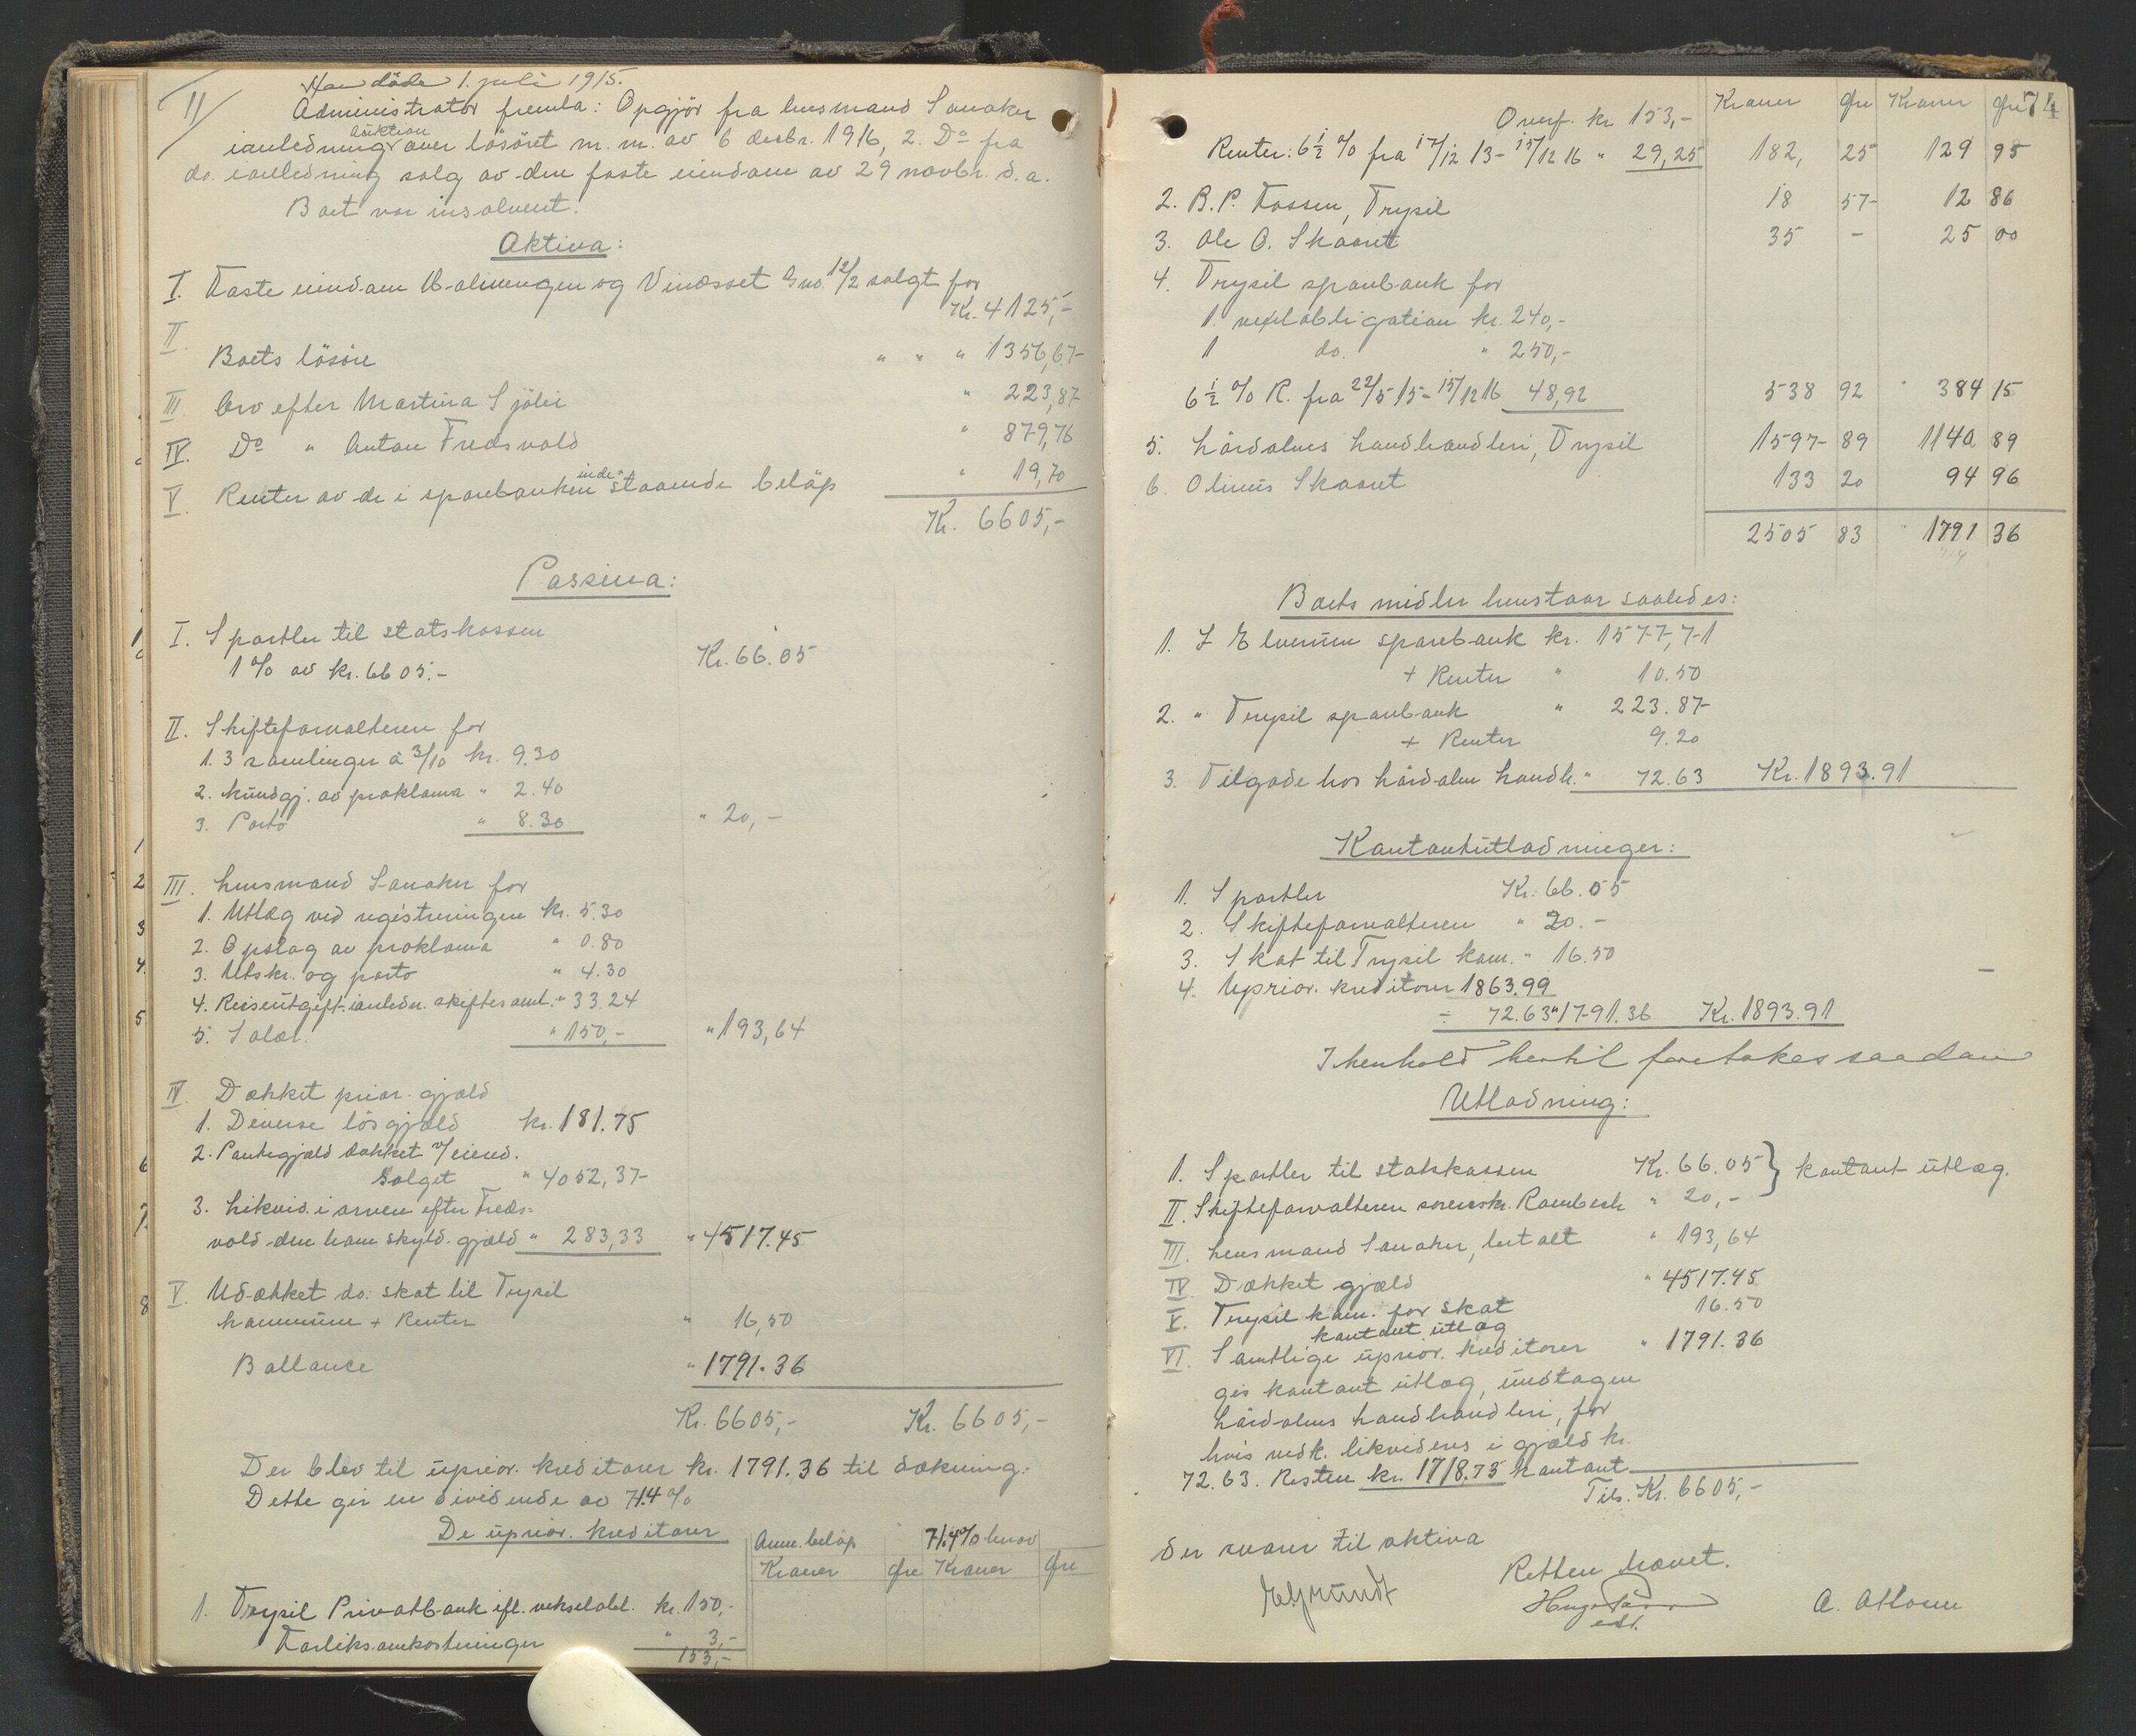 11/
Han döde 1. juli 1915.
Administrator fremla: Opgjör fra lensmand Sanaker
i anledning auktion over lösöret m. m. av 6 desbr. 1916, 2. Do fra
do. i anledning salg av den faste eiendom av 29 novbr. d. a.
Boet var insolvent.
Aktiva:
I. Faste eiendom og Gno. 12/2 solgt for
Kr. 4125,-
II. Boets lösöre " " " 1356,67
III. Arv efter Martina Sjölie " 223,87
IV. Do " Anton Fredsvold " 879,76
V. Renter av de i sparebanken inde-staaende belöp " 19,70
Kr. 6605,-
Passiva:
I. Sportler til statskassen
1% av kr. 6605.- Kr. 66.05
II. Skifteforvalteren for
1. 3 samlinger à 3/10 kr. 9.30
2. Kundgj. av proklama " 2.40
3. Porto " 8.30 " 20,-
III. Lensmand Sanaker for
1. Utlæg ved registreringen kr. 5.30
2. Opslag av proklama " 0.80
3. Utskr. og porto " 4.30
4. Reiseutgift. i anledn. skiftesaml. " 33.24
5. Salær. " 150,- " 193,64
IV. Dækket prior. gjæld
1. Diverse lösgjæld kr. 181.75
2. Pantegjæld dækket v/ eiend.
Salget " 4052,37
3. Likvid. i arven efter Freds-
vold den ham skyld. gjæld " 283,33 " 4517.45
V. Udækket do: skat til Trysil
kommune + Renter " 16,50
Ballance " 1791.36
Kr. 6605,- Kr. 6605,-
Der blev til uprior. kreditorer kr. 1791.36 til dækning.
Dette gir en dividende av 71.4%
De uprior. kreditorer
Anm. belöp 71.4% herav
Kroner Øre Kroner Øre
1. Trysil Privatbank ifl. vekselobl. kr. 150,-
Forliksomkostninger " 3,-
153,-
74
Kroner Øre Kroner Øre
Overf. kr 153,-
Renter: 6½ % fra 17/12 13 - 15/12 16 " 29,25 182, 25 129 95
2. B. P. Fossen, Trysil 18 57 12 86
3. Ole O. Skaaret 35 - 25 00
4. Trysil sparebank for
1. vexelobligation kr. 240,-
1 do. " 250,-
6½ % R. fra 22/5 15 - 15/12 16 48,92 538 92 384 15
5. Lördalens handleri, Trysil 1597 89 1140 89
6. Olinus Skaaret 133 20 94 96
2505 83 1791 36
Boets midler henstaar saaledes:
1. I Elverum sparebank kr. 1577,71
+ Renter " 10.50
2. " Trysil sparebank " 223.87
+ Renter 9.20
3. Tilgode hos Lördalen handl. " 72.63 Kr. 1893.91
Kontantutlodninger:
1. Sportler Kr. 66.05
2. Skifteforvalteren " 20.-
3. Skat til Trysil kom. " 16.50
4. Uprior. kreditorer 1863.99
÷ 72.63 " 1791.36 Kr. 1893.91
I henhold hertil foretokes saadan
Utlodning:
I. Sportler til statskassen Kr. 66.05 } kontant utlæg.
II. Skifteforvalteren sorenskr. Rambech " 20,-
III. Lensmand Sanaker, betalt " 193,64
IV. Dækket gjæld " 4517.45
V. Trysil kom. for skat 16.50
kontant utlæg
VI. Samtlige uprior. kreditorer " 1791.36
gis kontant utlæg, undtagen
Lördalens handleri, for
hvis vedk. likvideres i gjæld kr.
72.63. Resten kr. 1718.73 kontant
Tils. Kr. 6605,-
der svarer til aktiva
Retten hævet.